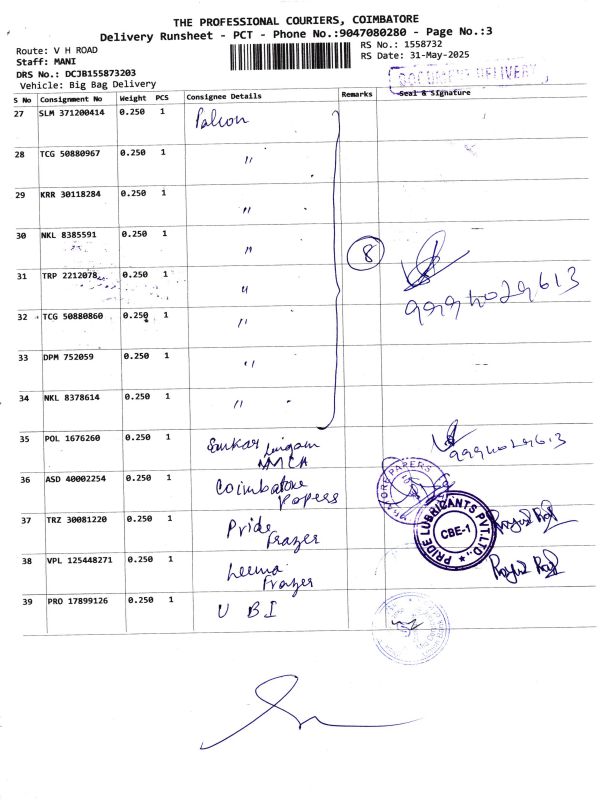 THE PROFESSIONAL COURIERS, COIMBATORE
Delivery Runsheet - PCT - Phone No.:9047080280 - Page No.:3
Route: V H ROAD RS No.: 1558732
Staff: MANI RS Date: 31-May-2025
DRS No.: DCJB155873203
Vehicle: Big Bag Delivery DOCUMENT DELIVERY
S No Consignment No Weight PCS Consignee Details Remarks Seal & Signature
27 SLM 371200414 0.250 1
28 TCG 50880967 0.250 1 "
29 KRR 30118284 0.250 1 "
30 NKL 8385591 0.250 1 " 8
31 TRP 2212078 0.250 1 "
32 TCG 50880860 0.250 1 "
33 DPM 752059 0.250 1 "
34 NKL 8378614 0.250 1 "
35 POL 1676260 0.250 1
36 ASD 40002254 0.250 1 Coimbatore
Papers
37 TRZ 30081220 0.250 1 Pride
Frazer
PRIDE LUBRICANTS PVT.LTD.
CBE-1
38 VPL 125448271 0.250 1 Leema
Frazer
39 PRO 17899126 0.250 1 U B I